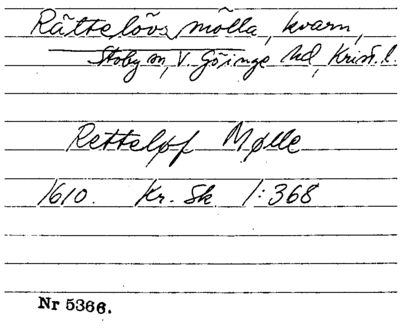 Rättelövs mölla, kvarn,
Stoby sn, V. Göinge hd, Krist. l.
Retteløf Mølle
1610. Kr. Sk 1:368
Nr 5366.